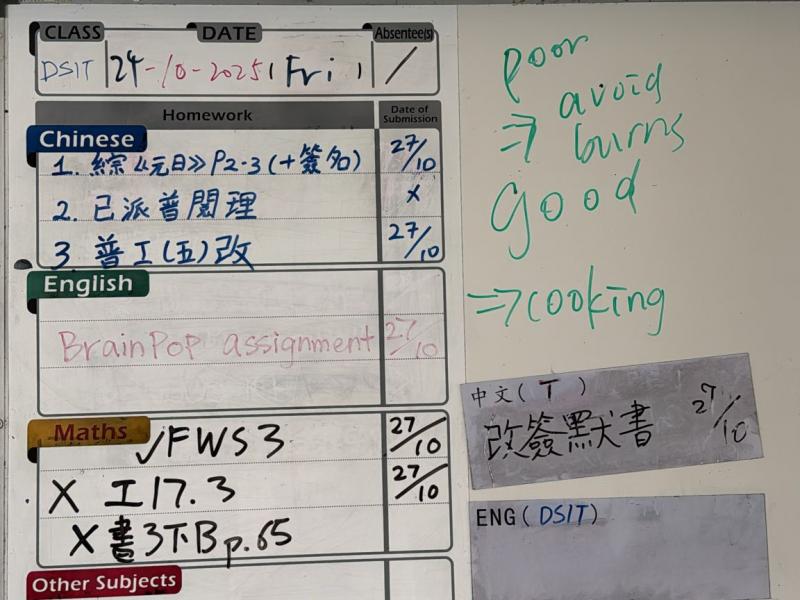 CLASS DATE Absentee(s)
DSIT 24-10-2025 (Fri) /
Homework Date of Submission
Chinese
1. 綜《元日》P2-3(+簽名) 27/10
2. 已派普閱理 x
3 普工(五)改 27/10
English
BrainPOP assignment 27/10
Maths
✓FWS3 27/10
X 工17.3 27/10
X 書3下B p.65
Other Subjects
poor
⇒ avoid
burns
Good
⇒ cooking
中文(T)
改簽默書 27/10
ENG(DSIT)